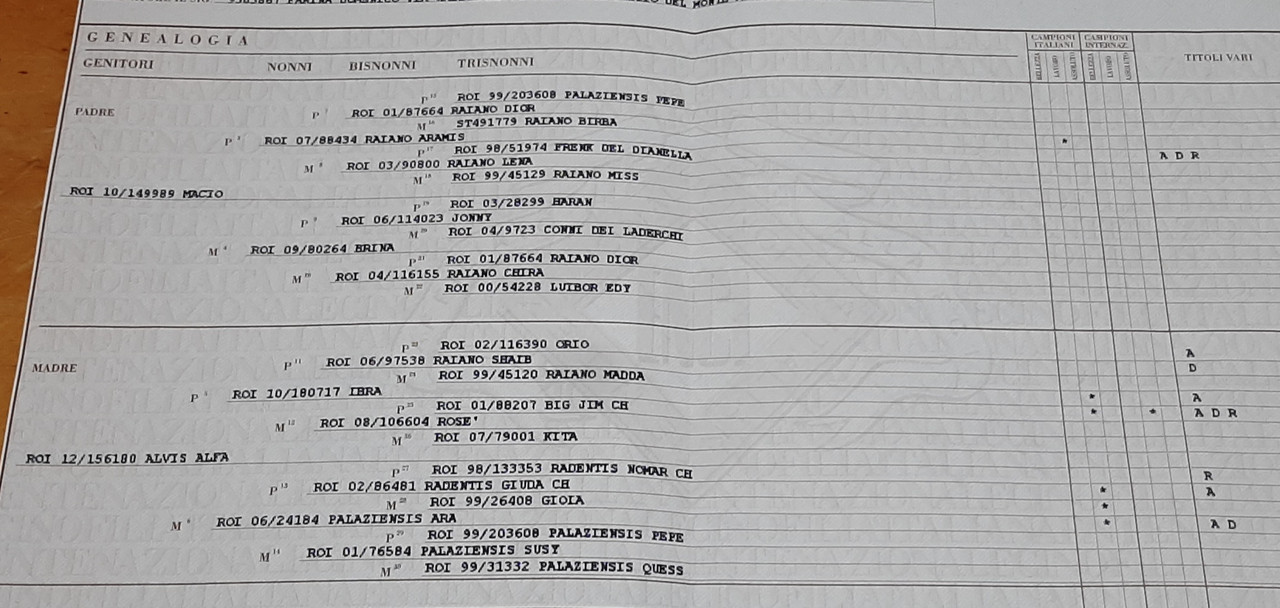 GENEALOGIA
CAMPIONI ITALIANI
CAMPIONI INTERNAZ.
GENITORI NONNI BISNONNI TRISNONNI
BELLEZZA LAVORO ASSOLUTO BELLEZZA LAVORO ASSOLUTO
TITOLI VARI
ROI 99/203608 PALAZIENSIS PEPE
PADRE P ROI 01/87664 RAIANO DIOR
M ST491779 RAIANO BIRBA
P ROI 07/88434 RAIANO ARAMIS *
P ROI 98/51974 FRENK DEL DIANELLA A D R
M ROI 03/90800 RAIANO LENA
M ROI 99/45129 RAIANO MISS
ROI 10/149989 MACIO
P ROI 03/28299 HARAN
P ROI 06/114023 JONNY
M ROI 04/9723 CONNI DEI LADERCHI
M ROI 09/80264 BRINA
P ROI 01/87664 RAIANO DIOR
M ROI 04/116155 RAIANO CHIRA
M ROI 00/54228 LUIBOR EDY
P ROI 02/116390 ORIO A
MADRE P ROI 06/97538 RAIANO SHAIB D
M ROI 99/45120 RAIANO MADDA
P ROI 10/180717 IBRA * A
P ROI 01/88207 BIG JIM CH * * A D R
M ROI 08/106604 ROSE'
M ROI 07/79001 KITA
ROI 12/156180 ALVIS ALFA
P ROI 98/133353 RADENTIS NOMAR CH R
P ROI 02/86481 RADENTIS GIUDA CH * A
M ROI 99/26408 GIOIA *
M ROI 06/24184 PALAZIENSIS ARA * A D
P ROI 99/203608 PALAZIENSIS PEPE
M ROI 01/76584 PALAZIENSIS SUSY
M ROI 99/31332 PALAZIENSIS QUESS